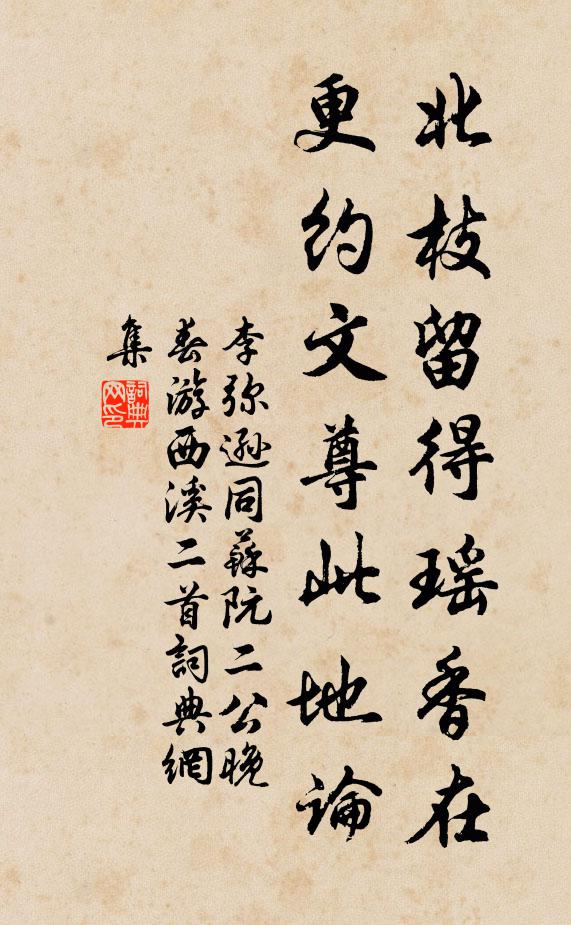 北枝留得瑶香在
更约文尊此地論
李弥遜同蘇阮二公晚
春游西溪二首詞典網
集
詞典
网印